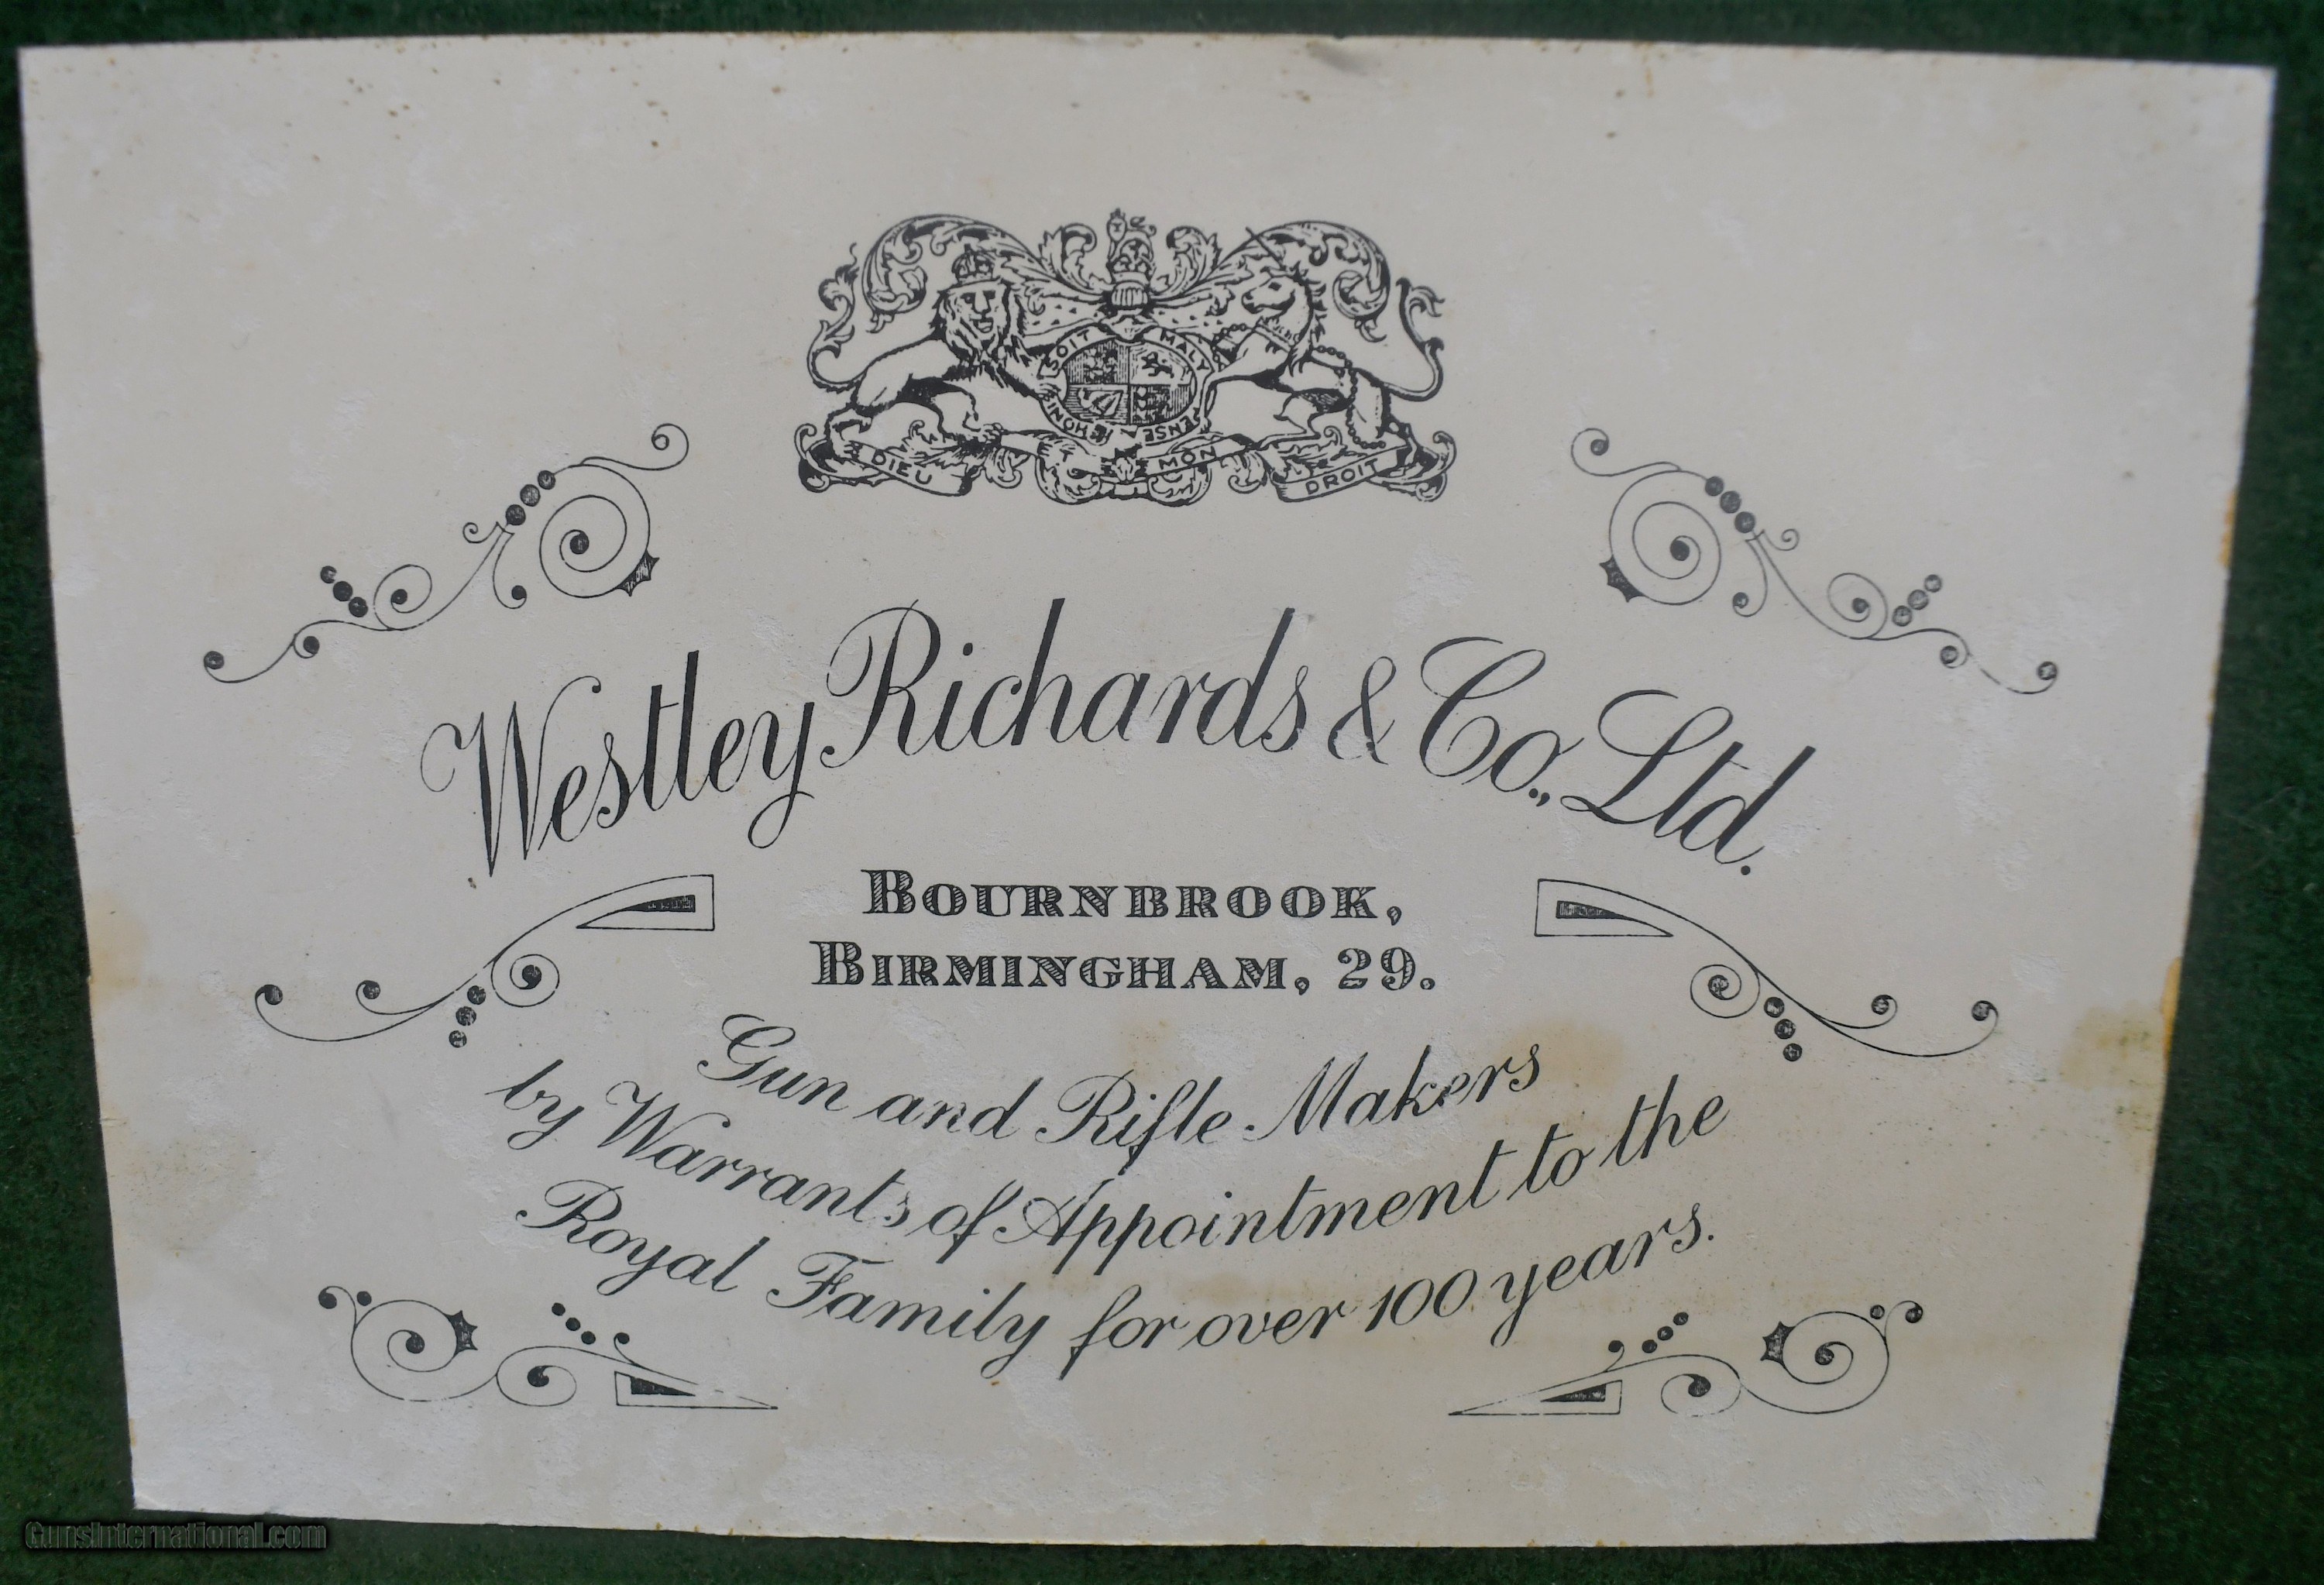 SOIT MALY
HONI ENSE
DIEU ET MON DROIT
Westley Richards & Co., Ltd.
BOURNBROOK,
BIRMINGHAM, 29.
Gun and Rifle Makers
by Warrants of Appointment to the
Royal Family for over 100 years.
GunsInternational.com